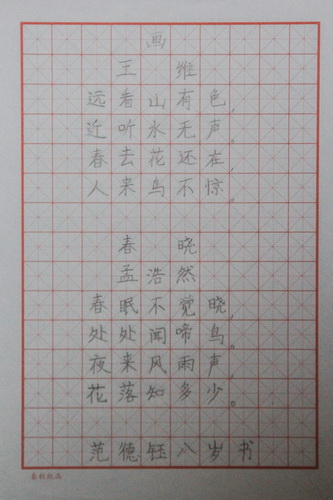 画
王维
远看山有色，
近听水无声。
春去花还在，
人来鸟不惊。
春晓
孟浩然
春眠不觉晓，
处处闻啼鸟。
夜来风雨声，
花落知多少。
范德钰八岁书